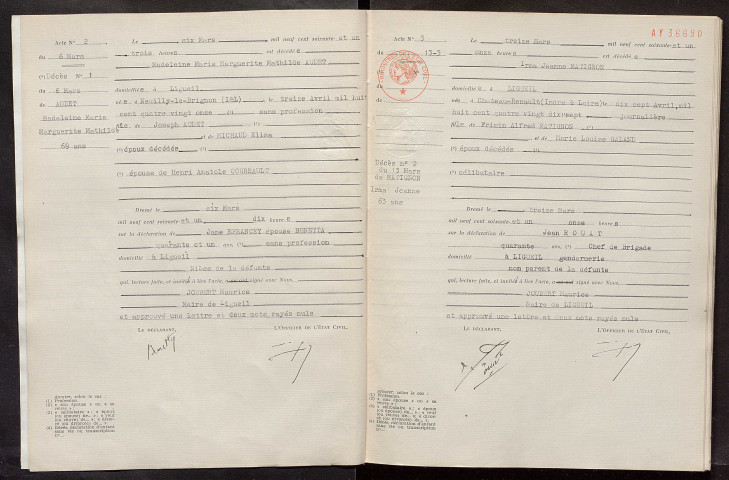 Acte N° 2
Le six Mars mil neuf cent soixante et un
6 Mars
trois heures est décédée
Madeleine Marie Marguerite Mathilde AUDET
(1) Décès N° 1
du 6 Mars
domiciliée à Ligueil
de AUDET
née à Neuilly-le-Brignon (I&L) le treize Avril mil huit
Madeleine Marie
cent quatre vingt onze (1) sans profession
Marguerite Mathilde
fille de Joseph AUDET (1)
et de MICHAUD Elise
69 ans
(2) époux décédés (1)
(3) épouse de Henri Anatole COURSAULT
Dressé le six Mars
mil neuf cent soixante et un dix heures
sur la déclaration de Jane épouse
quarante et un ans, (1) sans profession
domiciliée à Ligueil
Nièce de la défunte
qui, lecture faite, et invitée à lire l'acte, a signé avec Nous.
JOUBERT Maurice
Maire de Ligueil
et approuvé une lettre et deux mots rayés nuls
LE DÉCLARANT,
L'OFFICIER DE L'ÉTAT CIVIL,
(1) Profession.
AY 36680
Acte N° 3
Le treize Mars mil neuf cent soixante et un
13-3
onze heures est décédée
Irma Jeanne MATIGNON
domiciliée à LIGUEIL
née à Chateau-Renault (Indre & Loire) le six sept Avril, mil
huit cent quatre vingt dix sept journalière
fille de Firmin Alfred MATIGNON (1)
et de Marie Louise GALAND
Décès n° 2
(2) époux décédés (1)
du 13 Mars
de MATIGNON
(3) célibataire
Irma Jeanne
63 ans
Dressé le treize Mars
mil neuf cent soixante et un onze heures
sur la déclaration de Jean ROUAT
quarante ans, (1) Chef de Brigade
domicilié à LIGUEIL gendarmerie
non parent de la défunte
qui, lecture faite, et invité à lire l'acte, a signé avec Nous.
JOUBERT Maurice
Maire de LIGUEIL
et approuvé une lettre et deux mots rayés nuls
LE DÉCLARANT,
L'OFFICIER DE L'ÉTAT CIVIL,
(1) Profession.